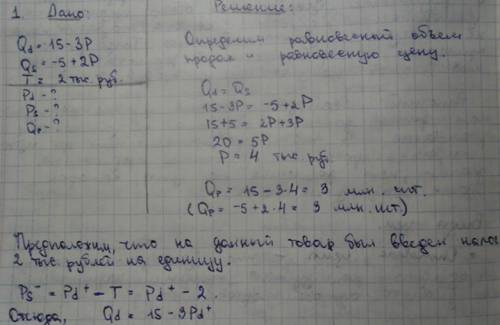 1. Дано:
Решение:
Qd = 15-3P
Qs = -5+2P
T = 2 тыс. руб.
Pd - ?
Ps - ?
Qp - ?
Определим равновесный объем
продаж и равновесную цену.
Qd = Qs
15-3P = -5+2P
15+5 = 2P+3P
20 = 5P
P = 4 тыс. руб.
Qp = 15-3·4 = 3 млн. шт.
(Qp = -5+2·4 = 3 млн. шт)
Предположим, что на данный товар был введен нало
2 тыс. рублей на единицу.
Ps⁻ = Pd⁺ - T = Pd⁺ - 2.
Отсюда, Qd = 15-3Pd⁺